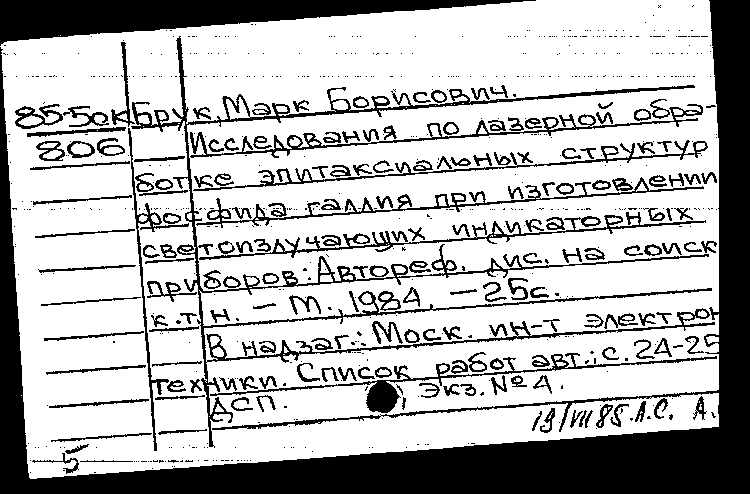 85-5окБрук, Марк Борисович.
806 Исследования по лазерной обра-
ботке эпитаксиальных структур
фосфида галлия при изготовлении
светоизлучающих индикаторных
приборов: Автореф. дис. на соиск
к.т.н. – М., 1984. – 25с.
В надзаг.: Моск. ин-т электрон
техники. Список работ авт.: с. 24-25
ДСП. Экз. № 4.
19/VII 85. Л.С. А.
5